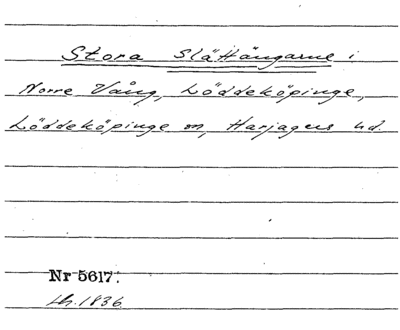 Stora Slättängarne i
Norre Vång, Löddeköpinge,
Löddeköpinge sn, Harjagers hd.
Nr 5617.
Lh. 1836